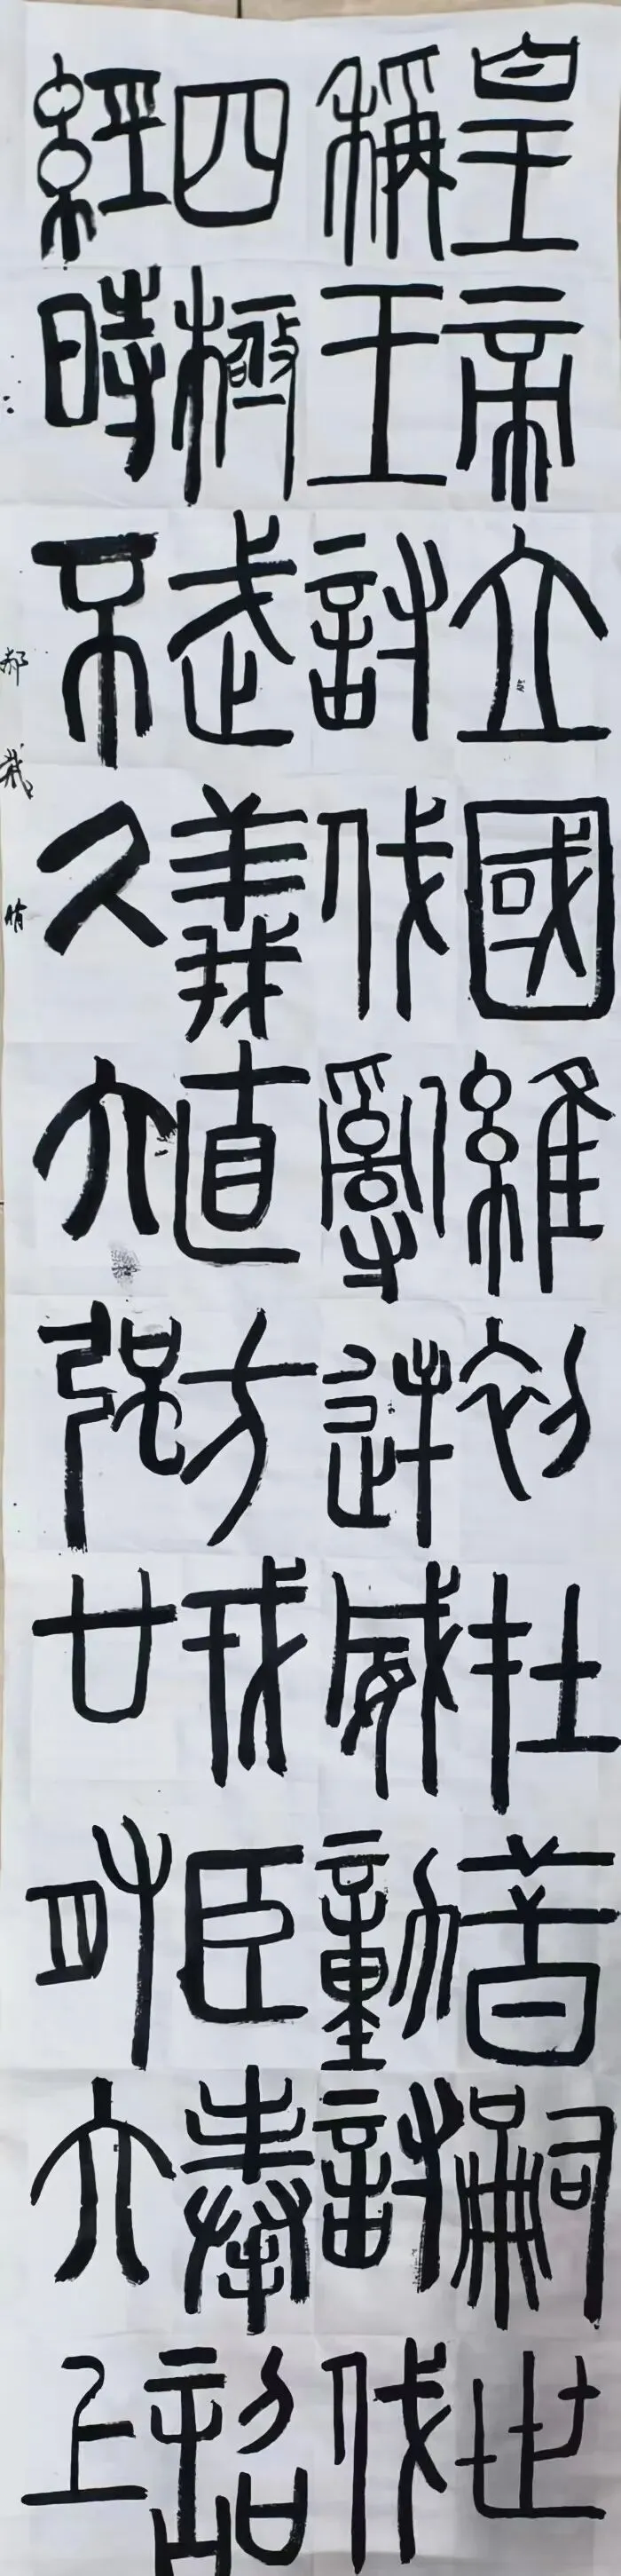 皇帝立國維初在昔嗣世
稱王討伐亂逆威動討伐
四極武義直方戎臣奉詔
經時不久六強廿有六上
郝